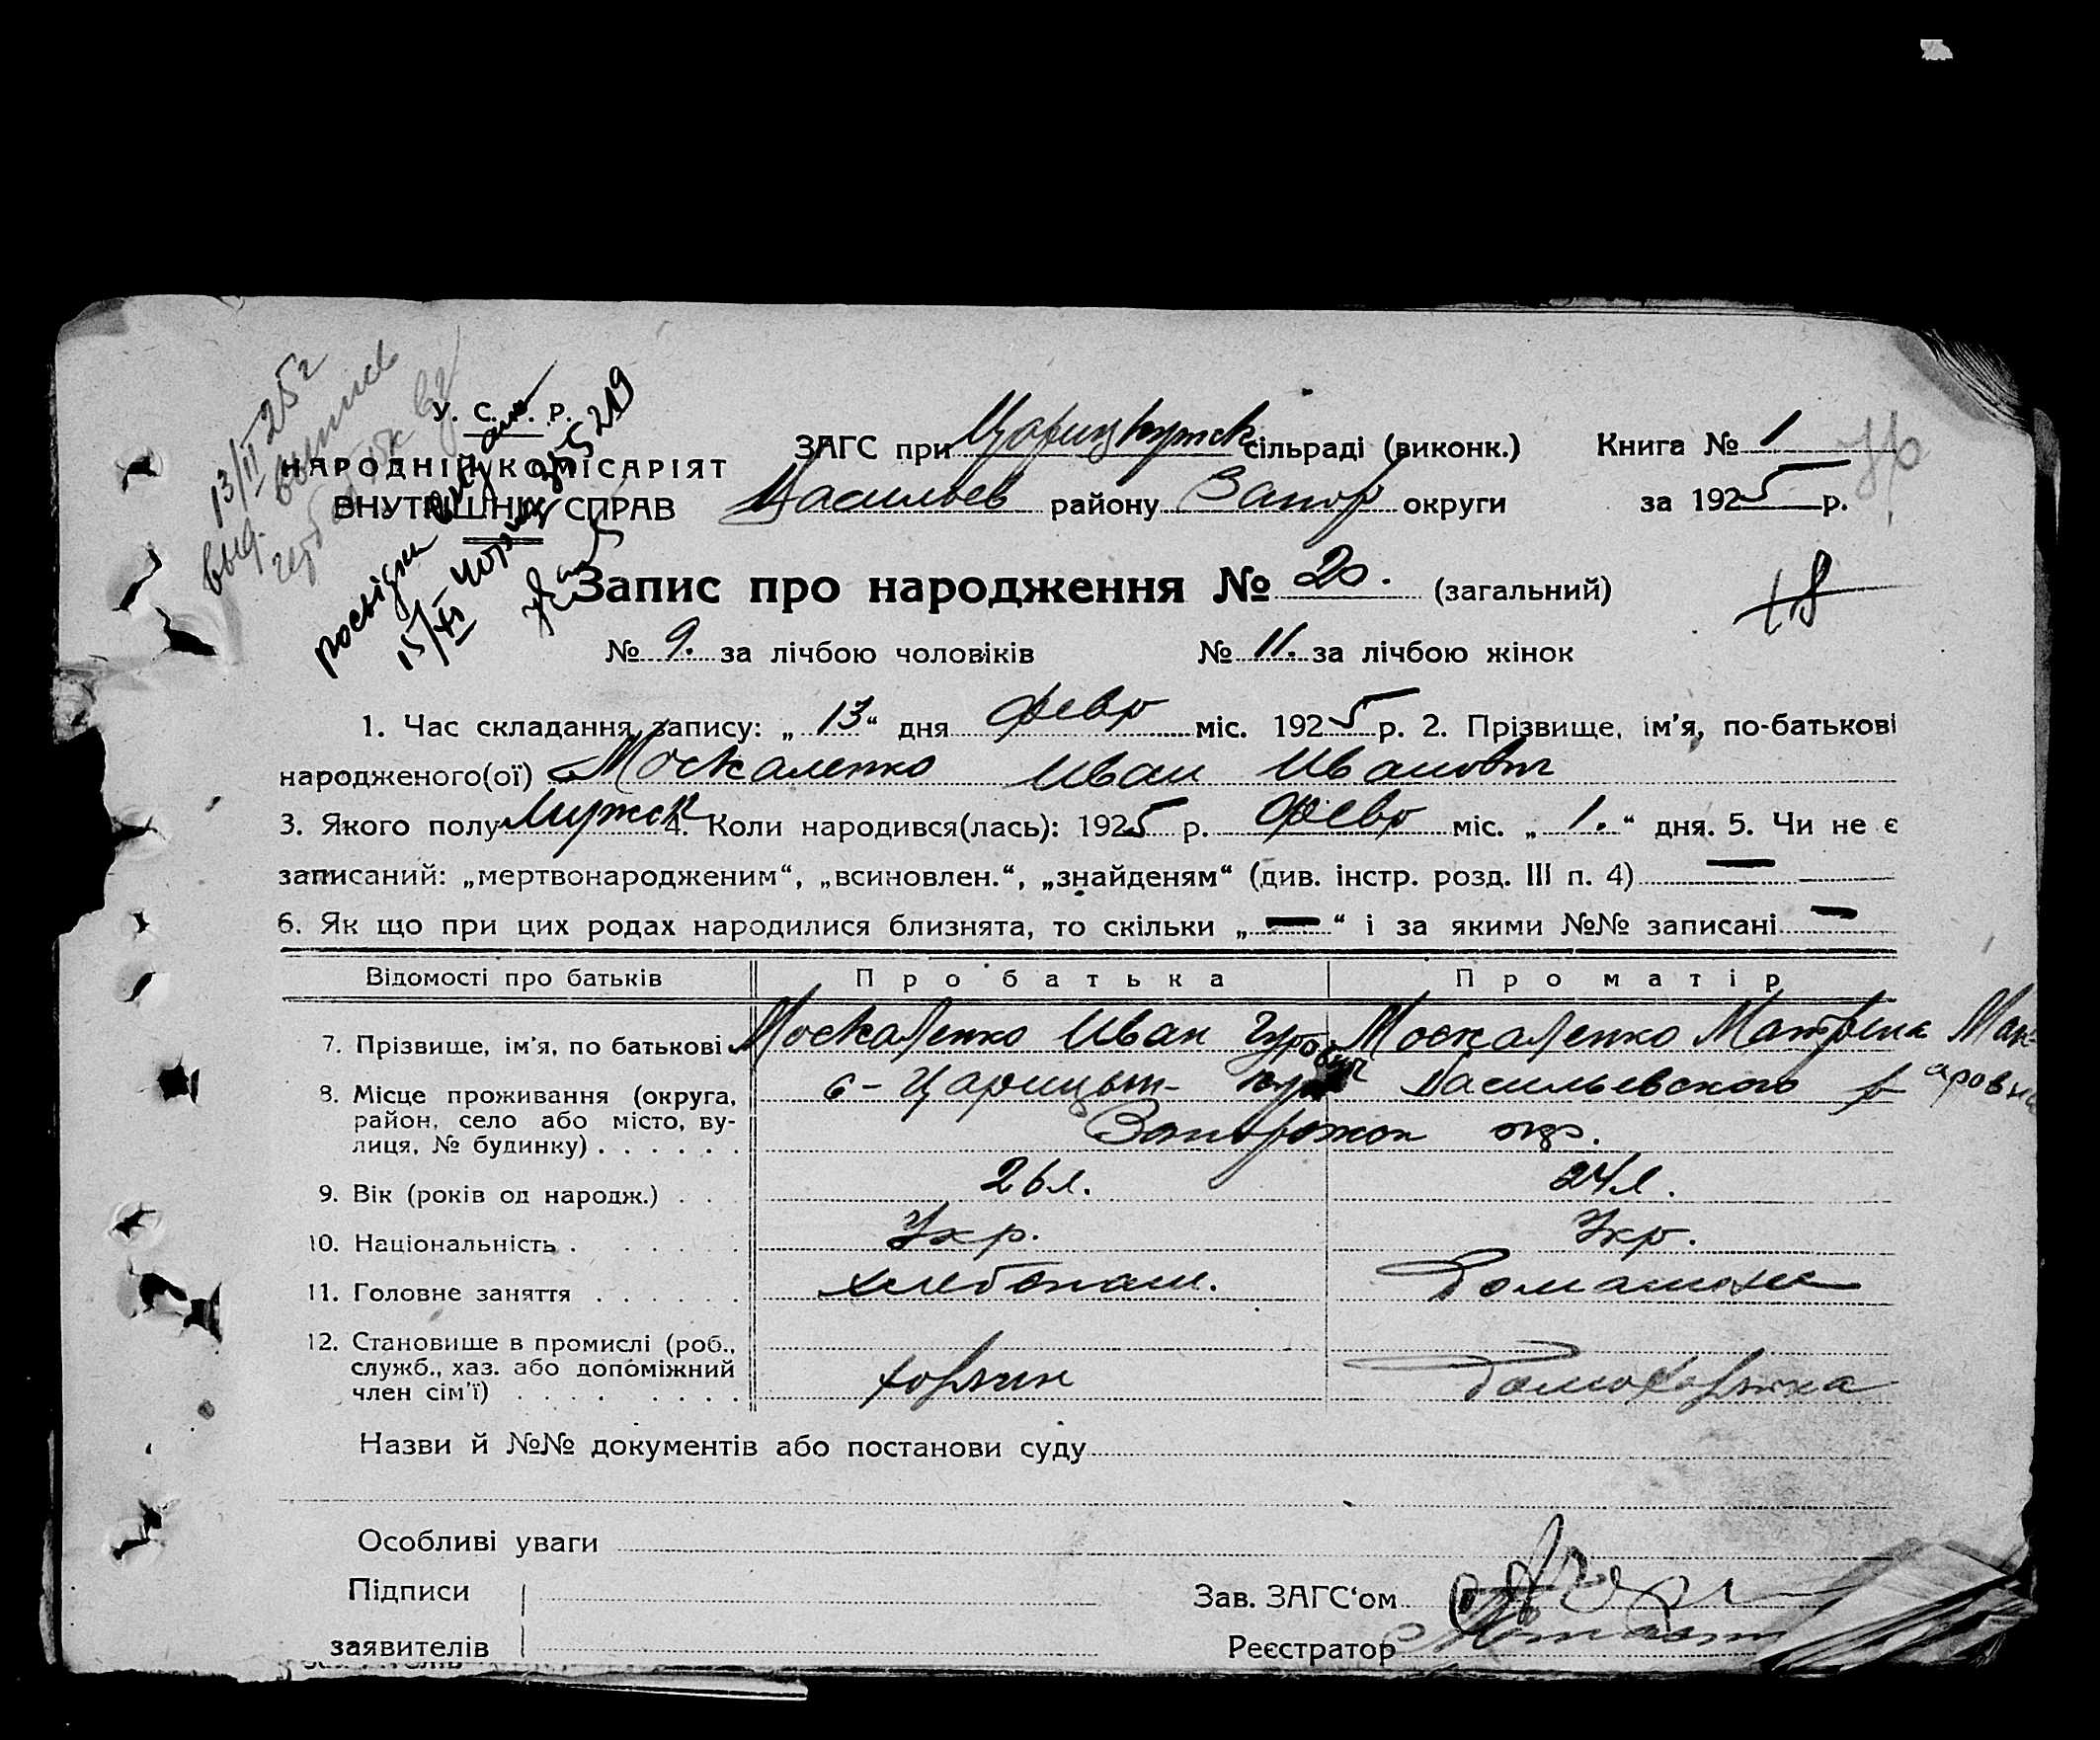 13/II 25 г
У. С. Р. Р.
НАРОДНІЙ КОМІСАРІЯТ
ВНУТРІШНІХ СПРАВ
ЗАГС при сільраді (виконк.) Книга № 1
Васильев району Запор округи за 1925 р.
Запис про народження № 20. (загальний)
№ 9. за лічбою чоловіків № 11. за лічбою жінок
1. Час складання запису: „ 13 “ дня Февр міс. 1925 р. 2. Прізвище, ім'я, по-батькові
народженого(ої) Москаленко Иван Иванович
3. Якого полу Мужск 4. Коли народився(лась): 1925 р. Февр міс. „ 1. “ дня. 5. Чи не є
записаний: „мертвонародженим“, „всиновлен.“, „знайденям“ (див. інстр. розд. III п. 4) —
6. Як що при цих родах народилися близнята, то скільки „ — “ і за якими №№ записані —
Відомості про батьків Про батька Про матір
7. Прізвище, ім'я, по батькові Москаленко Иван Гурович Москаленко Матрена Макаровна
8. Місце проживання (округа,
район, село або місто, ву-
лиця, № будинку) . . . . . .
Васильевского р
Запорожск окр.
9. Вік (років од народж.) . . 26 л. 24 л.
10. Національність . . . . . Укр. Укр.
11. Головне заняття . . . . . . хлебопаш.
12. Становище в промислі (роб.,
служб., хаз. або допоміжний
член сім'ї) . . . . . . . .
Назви й №№ документів або постанови суду
Особливі уваги
Підписи
заявителів
Зав. ЗАГС‘ом
Реєстратор